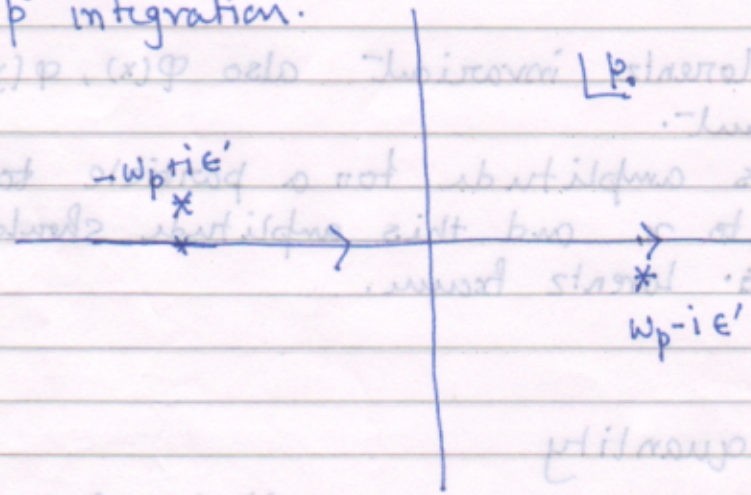 p integration.
p₀
-ωₚ+iϵ'
ωₚ-iϵ'